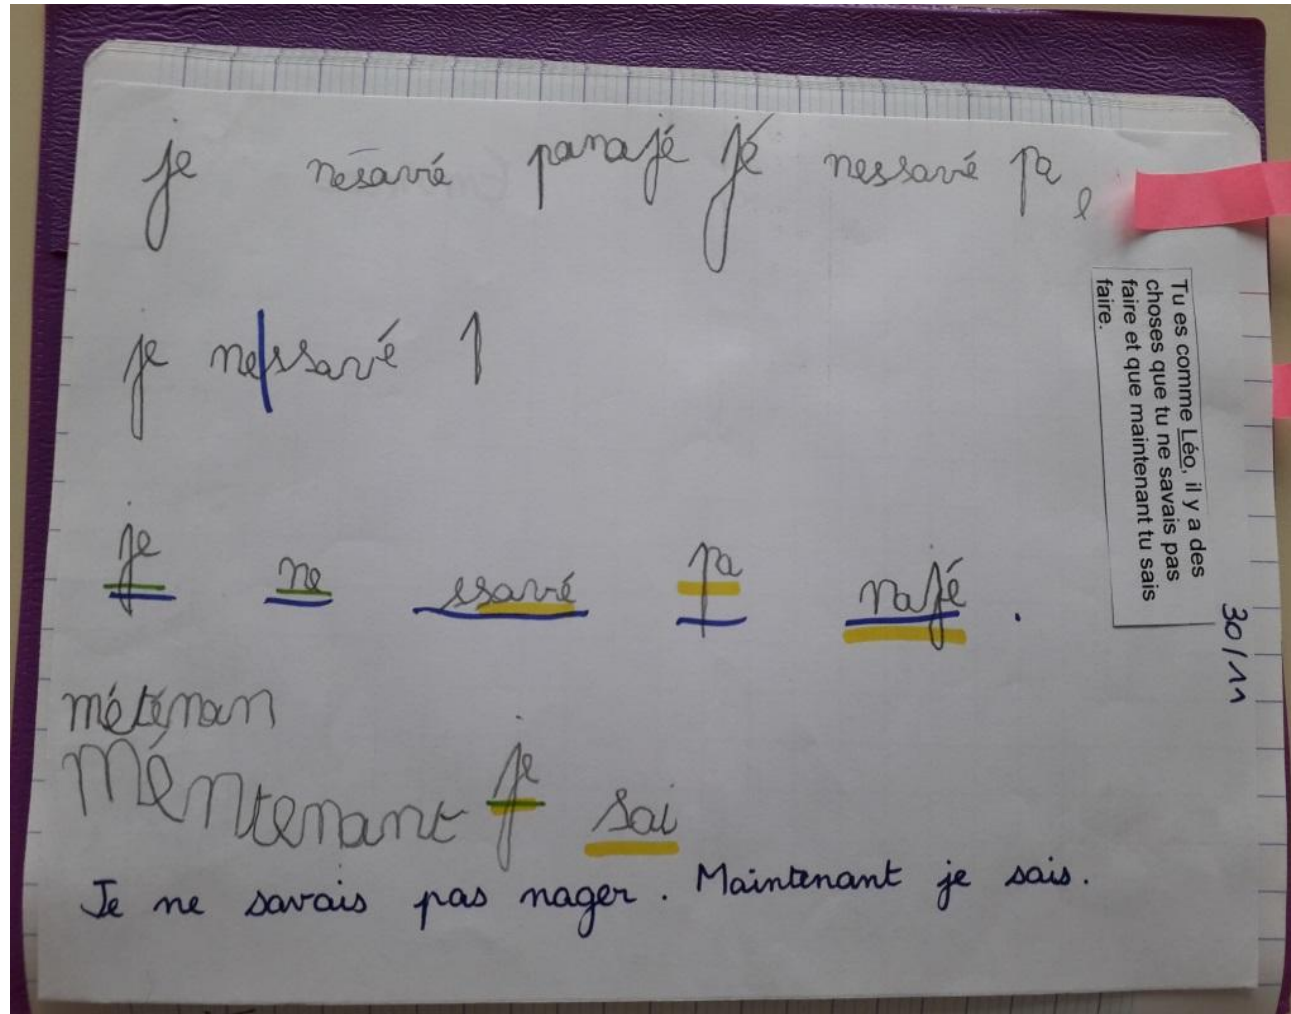 je nésavé panajé jé nessavé pa e
je nessavé
je ne ssavé pa najé .
méténan
Méntenant je sai
Je ne savais pas nager. Maintenant je sais.
Tu es comme Léo, il y a des
choses que tu ne savais pas
faire et que maintenant tu sais
faire.
30/11